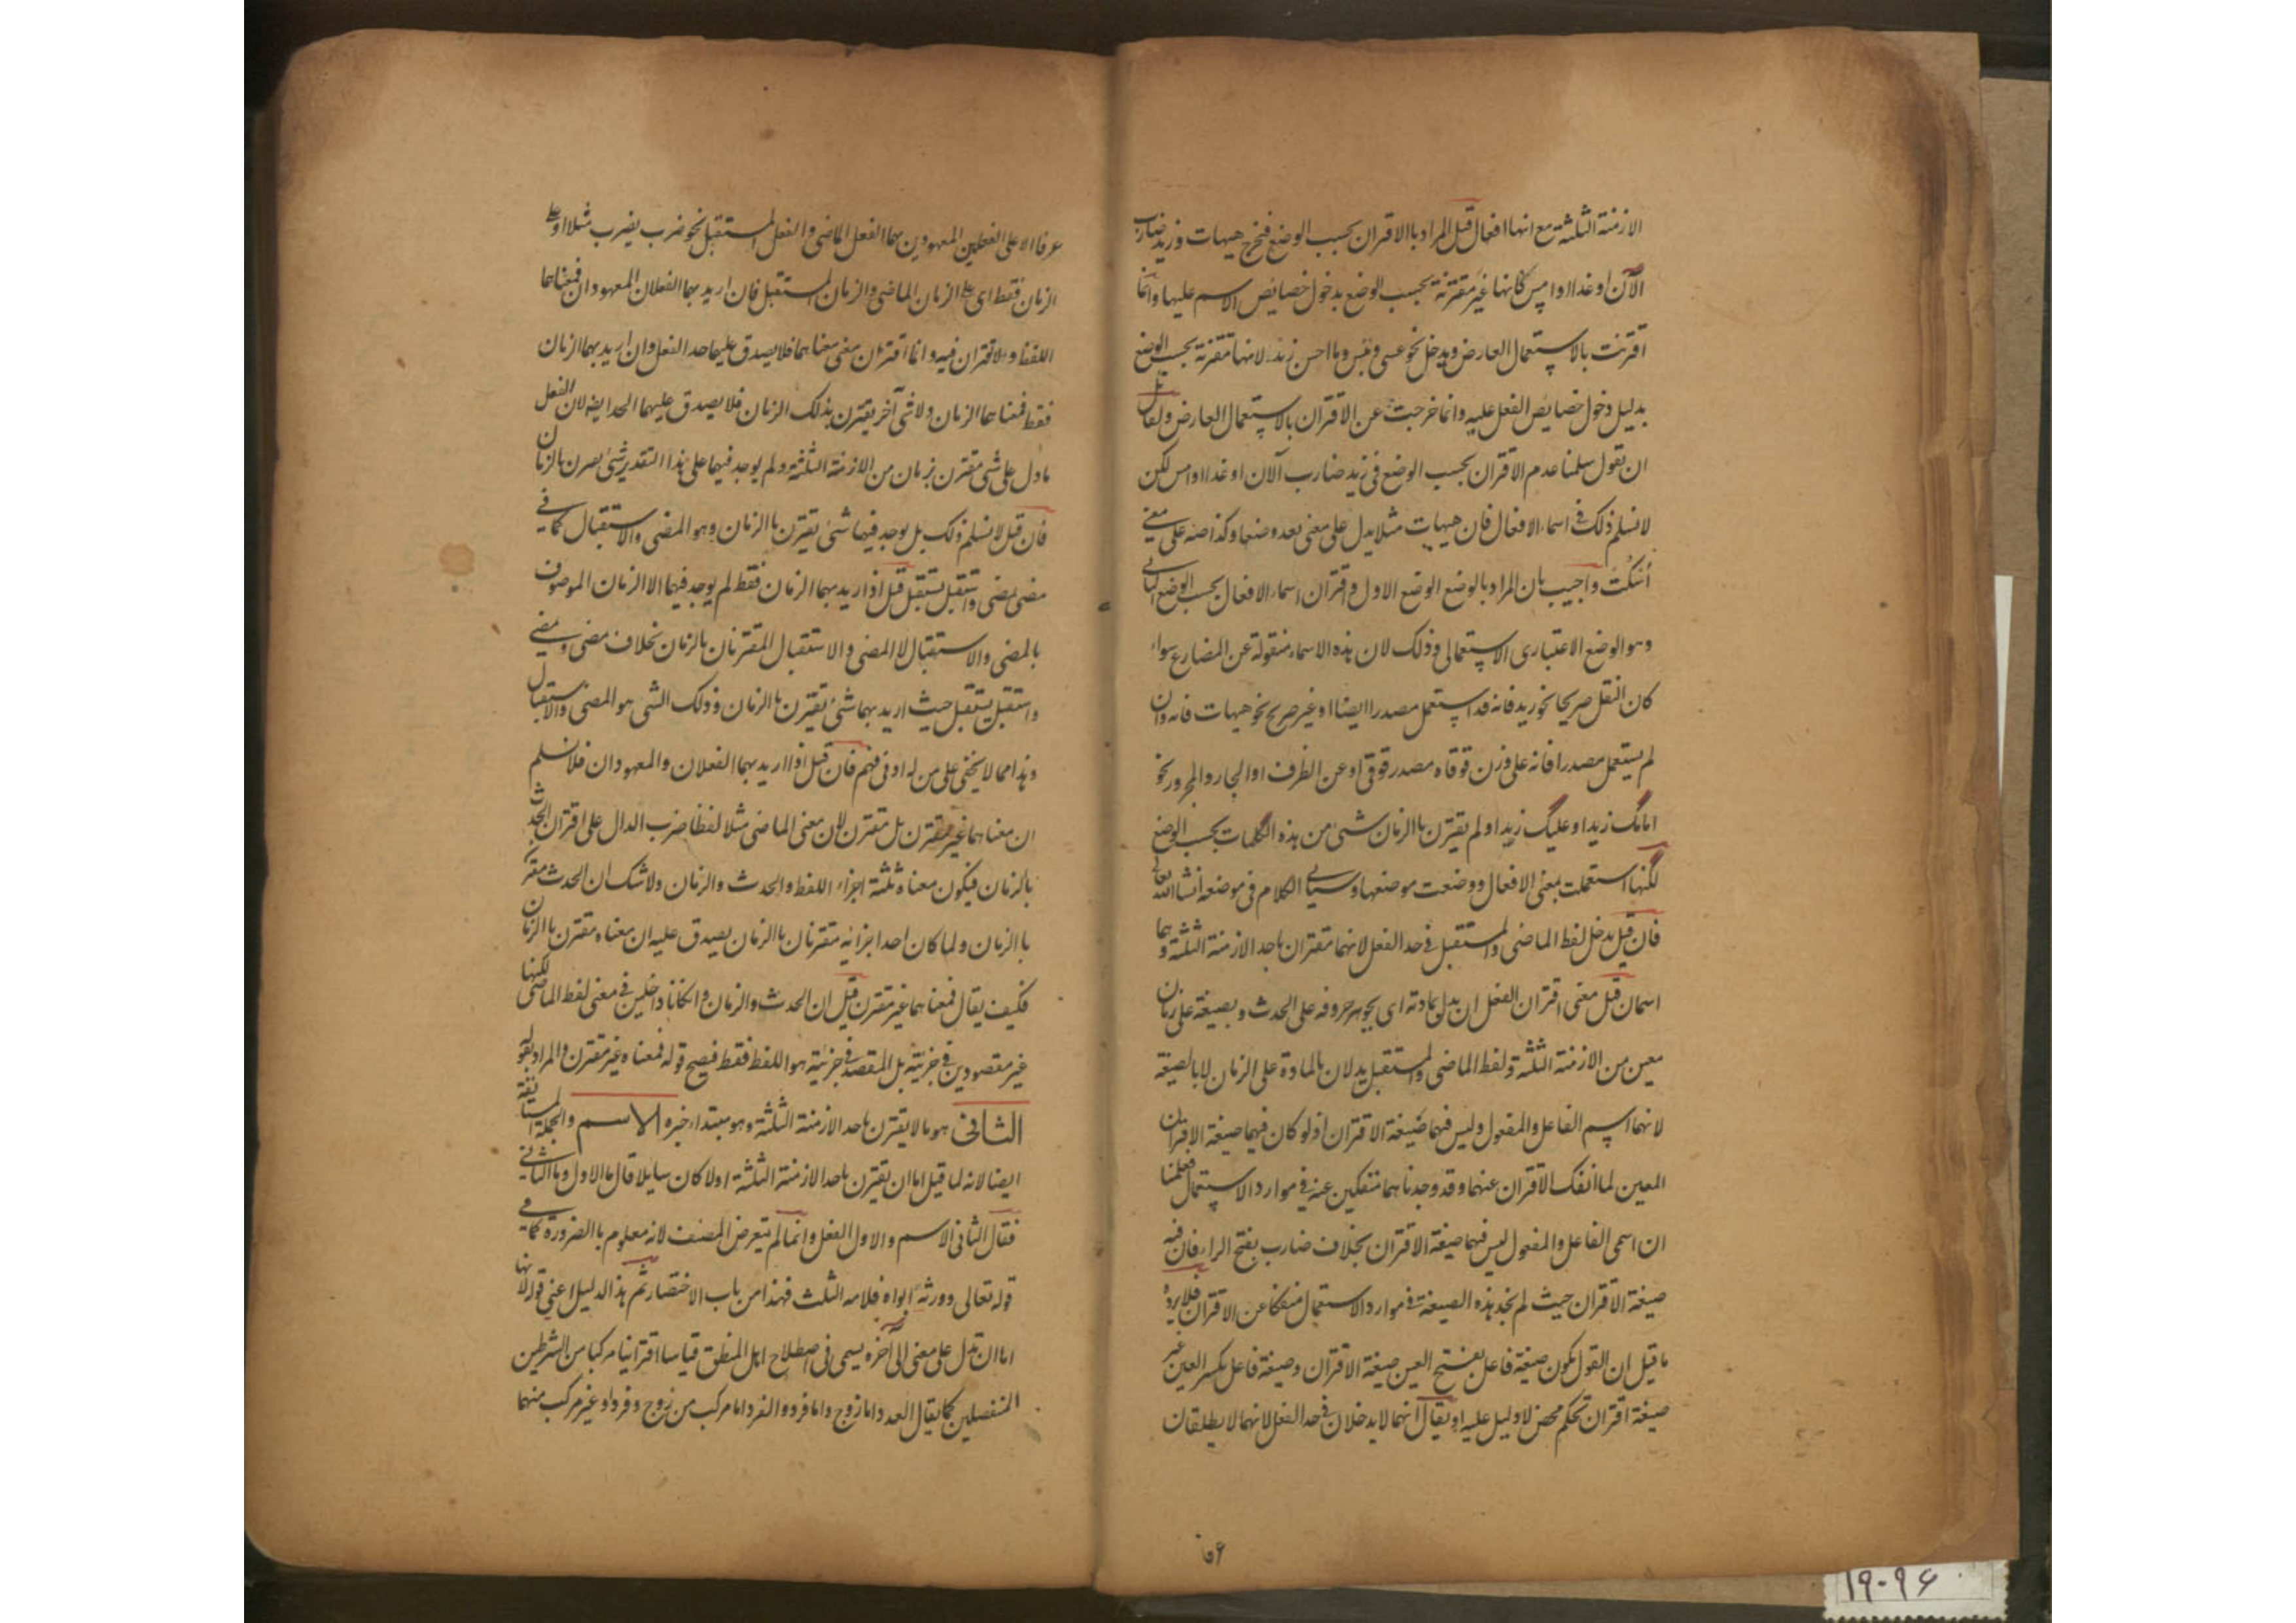 الازمنة الثلثة مع انها افعال قيل المراد بالاقتران بحسب الوضع فخرج هيهات وزيد ضارب
الآن او غدا او امس كانها غير مقترنة بحسب الوضع بدخول خصايص الاسم عليها وانما
اقترنت بالاستعمال العارض ويدخل نحو عسى وبئس وما احسن زيدا لانها مقترنة بحسب الوضع
بدليل دخول خصايص الفعل عليه وانما خرجت عن الاقتران بالاستعمال العارض ولقائل
ان يقول سلمنا عدم الاقتران بحسب الوضع في زيد ضارب الآن او غدا او امس لكن
لا نسلم ذلك في اسماء الافعال فان هيهات مثلا يدل على معنى بعد وضعا وكذا صه على معنى
اسكت واجيب بان المراد بالوضع الوضع الاول واقتران اسماء الافعال بحسب الوضع الثاني
وهو الوضع الاعتباري الاستعمالي وذلك لان هذه الاسماء منقولة عن المضارع سواء
كان النقل صريحا نحو رويد فانه قد استعمل مصدرا ايضا او غير صريح نحو هيهات فانه وان
لم يستعمل مصدرا فانه على وزن قوقاه مصدر قوقى او عن الظرف او الجار والمجرور نحو
امامك زيدا وعليك زيدا ولم يقترن بالزمان شئ من هذه الكلمات بحسب الوضع
لكنها استعملت بمعنى الافعال ووضعت موضعها وسيأتي الكلام في موضعه انشاء الله تعالى
فان قيل يدخل لفظ الماضي والمستقبل في حد الفعل لانهما مقتران باحد الازمنة الثلثة وهما
اسمان قيل معنى اقتران الفعل ان يدل بمادته اي بجوهر حروفه على الحدث وبصيغته على زمان
معين من الازمنة الثلثة ولفظ الماضي والمستقبل يدلان بالمادة على الزمان لا بالصيغة
لانهما اسم الفاعل والمفعول وليس فيهما صيغة الاقتران اذ لو كان فيهما صيغة الاقتران
المعين لما انفك الاقتران عنهما وقد وجدناهما منفكين عنه في موارد الاستعمال فعلمنا
ان اسمي الفاعل والمفعول ليس فيهما صيغة الاقتران بخلاف ضارب بفتح الراء فان فيه
صيغة الاقتران حيث لم نجد هذه الصيغة في موارد الاستعمال منفكا عن الاقتران فلا يرد
ما قيل ان القول بكون صيغة فاعل بفتح العين صيغة الاقتران وصيغة فاعل بكسر العين غير
صيغة اقتران تحكم محض لا دليل عليه او يقال انهما لا يدخلان في حد الفعل لانهما لا يطلقان
عرفا الا على الفعلين المعهودين هما الفعل الماضي والفعل المستقبل نحو ضرب يضرب مثلا او على
الزمان فقط اي على الزمان الماضي والزمان المستقبل فان اريد بهما الفعلان المعهودان فمعناهما
اللفظ والاقتران فيه وانما اقتران معنى معناهما فلا يصدق عليهما حد الفعل وان اريد بهما الزمان
فقط فمعناهما الزمان ولا شئ آخر يقترن بذلك الزمان فلا يصدق عليهما الحد ايضا لان الفعل
ما دل على شئ مقترن بزمان من الازمنة الثلثة ولم يوجد فيهما على هذا التقدير شئ يقترن بالزمان
فان قيل لا نسلم ذلك بل يوجد فيهما شئ يقترن بالزمان وهو المضي والاستقبال كما في
مضى يمضي واستقبل يستقبل قيل اذا اريد بهما الزمان فقط لم يوجد فيهما الا الزمان الموصوف
بالمضي والاستقبال لا المضي والاستقبال المقترنان بالزمان بخلاف مضى ويمضي
واستقبل يستقبل حيث اريد بهما شئ يقترن بالزمان وذلك الشئ هو المضي والاستقبال
وهذا مما لا يخفى على من له ادنى فهم فان قيل اذا اريد بهما الفعلان والمعهودان فلا نسلم
ان معناهما غير مقترن بل مقترن لان معنى الماضي مثلا لفظا ضرب الدال على اقتران الحدث
بالزمان فيكون معناه ثلثة اجزاء اللفظ والحدث والزمان ولا شك ان الحدث مقترن
بالزمان ولما كان احد اجزائه مقترنان بالزمان يصدق عليه ان معناه مقترن بالزمان
فكيف يقال فمعناهما غير مقترن قيل ان الحدث والزمان وان كانا داخلين في معنى لفظ الماضي لكنهما
غير مقصودين في جزئية بل المقصد في جزئية هو اللفظ فقط فيصح قوله فمعناه غير مقترن والمراد بقوله
الثاني هو ما لا يقترن باحد الازمنة الثلثة وهو مبتداء خبره الاسم والجملة المستانفة
ايضا لانه لما قيل اما ان يقترن باحد الازمنة الثلثة اولا كان سايلا قال ما الاول وما الثاني
فقال الثاني الاسم والاول الفعل وانما لم يتعرض المصنف لانه معلوم بالضرورة كما في
قوله تعالى وورثه ابواه فلامه الثلث فهذا من باب الاختصار ثم هذا الدليل اعني قوله لانها
اما ان تدل على معنى الى آخره يسمى في اصطلاح اهل المنطق قياسا اقترانيا مركبا من الشرطين
المنفصلين كما يقال العدد اما زوج واما فرد والفرد اما مركب من زوج وفرد او غير مركب منهما
١٩٠٩٤